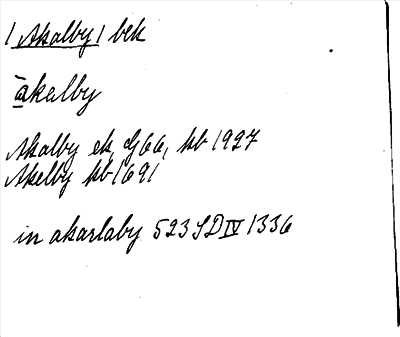 / Akalby / bek
àkalby
Akalby ek, G66, kb 1927
Akelby kb 1691
in akarlaby 523 SD IV 1336